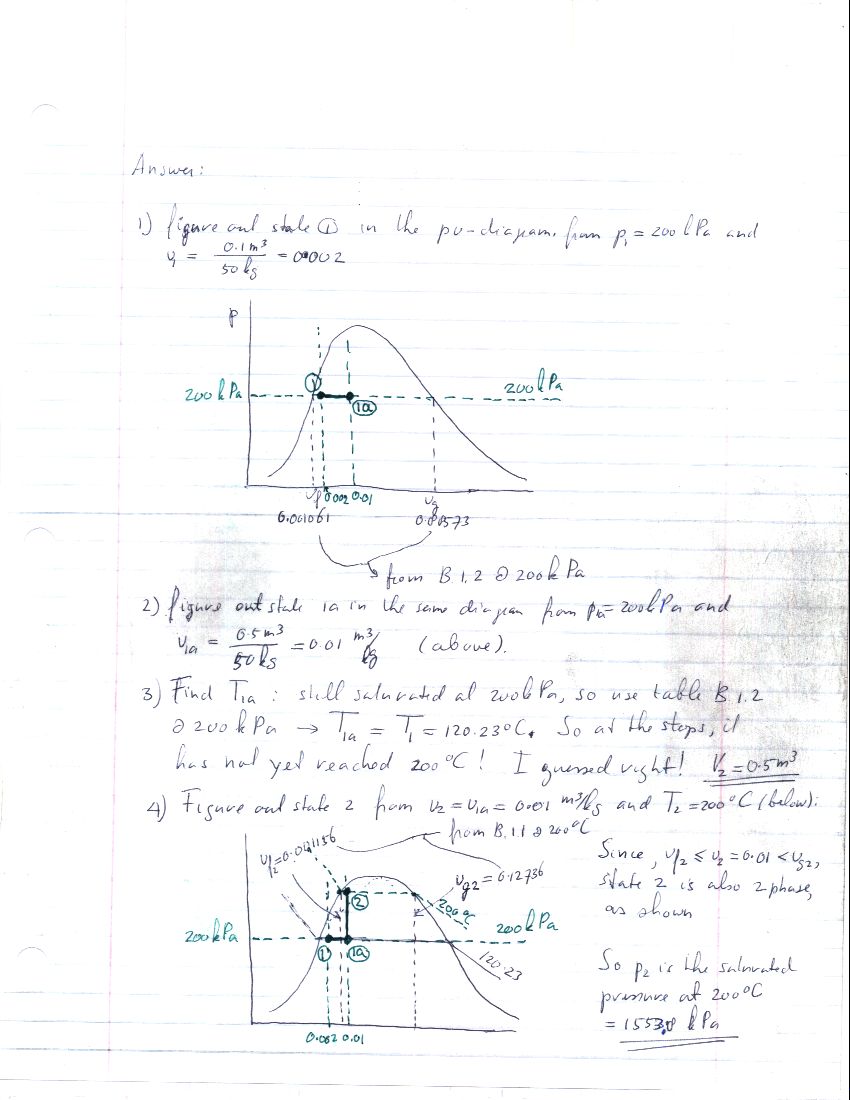 Answer:
1) figure out state ① in the pv-diagram from p₁ = 200 kPa and
v₁ = 0.1 m³ / 50 kg = 0.002
p
200 kPa
①
200 kPa
1a
vf 0.002 0.01 vg
0.001061
from B 1.2 @ 200 kPa
2) figure out state 1a in the same diagram from p1a = 200 kPa and
v1a = 0.5 m³ / 50 kg = 0.01 m³/kg (above).
3) Find T1a : still saturated at 200 kPa, so use table B.1.2
@ 200 kPa → T1a = T1 = 120.23°C. So at the stops, it
has not yet reached 200°C! I guessed right! V2 = 0.5 m³
4) Figure out state 2 from v2 = v1a = 0.01 m³/kg and T2 = 200°C (below):
from B.1.1 @ 200°C
vf2 = 0.001156
vg2 = 0.12736
2
200°C
200 kPa
200 kPa
1 1a
120.23
0.002 0.01
Since vf2 ≤ v2 = 0.01 < vg2,
state 2 is also 2 phase,
as shown
So p2 is the saturated
pressure at 200°C
= 1553.8 kPa